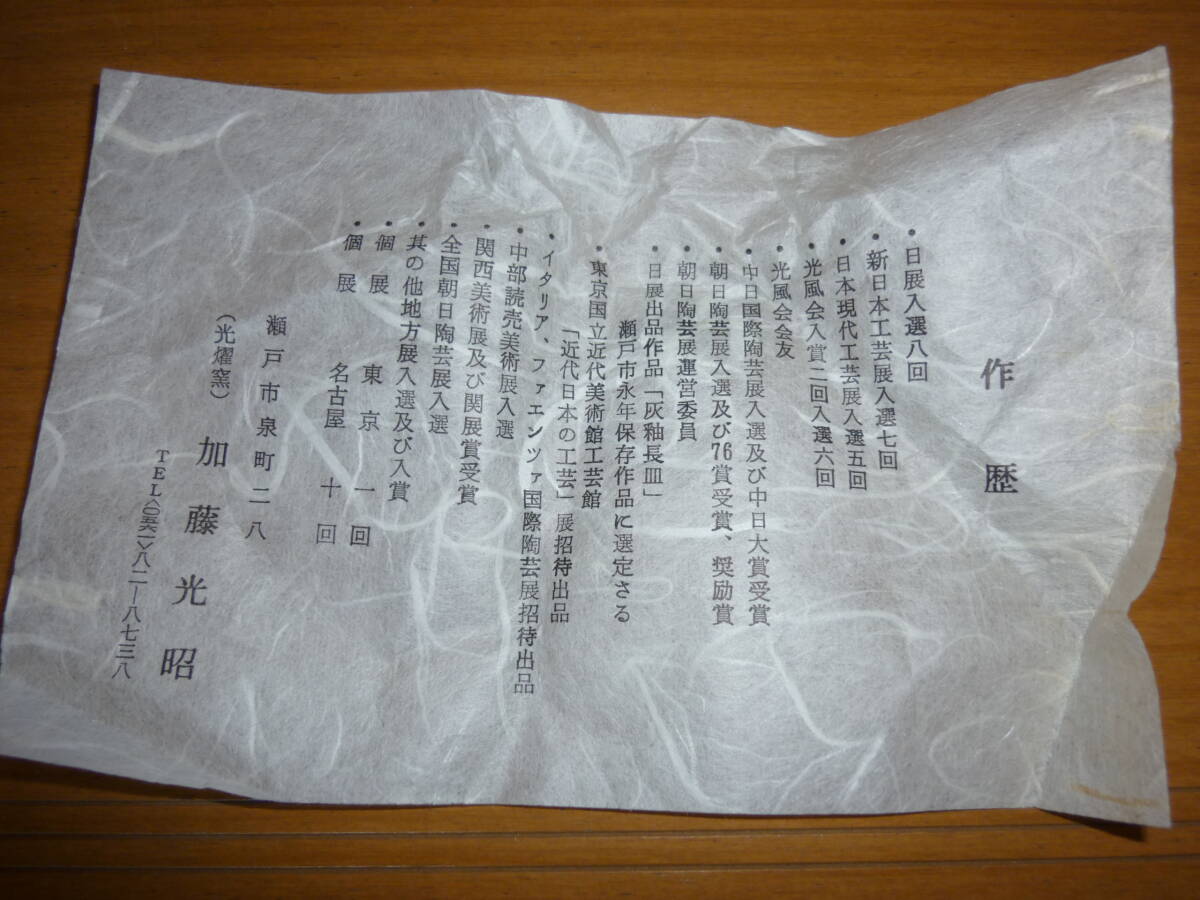 作歴
・日展入選八回
・新日本工芸展入選七回
・日本現代工芸展入選五回
・光風会入賞二回入選六回
・光風会会友
・中日国際陶芸展入選及び中日大賞受賞
・朝日陶芸展入選及び76賞受賞、奨励賞
・朝日陶芸展運営委員
・日展出品作品「灰釉長皿」
瀬戸市永年保存作品に選定さる
・東京国立近代美術館工芸館
「近代日本の工芸」展招待出品
・イタリア、ファエンツァ国際陶芸展招待出品
・中部読売美術展入選
・関西美術展及び関展賞受賞
・全国朝日陶芸展入選
・其の他地方展入選及び入賞
・個展 東京 一回
・個展 名古屋 十回
瀬戸市泉町二八
(光燿窯) 加藤光昭
TEL〈〇五六一〉八二―八七三八